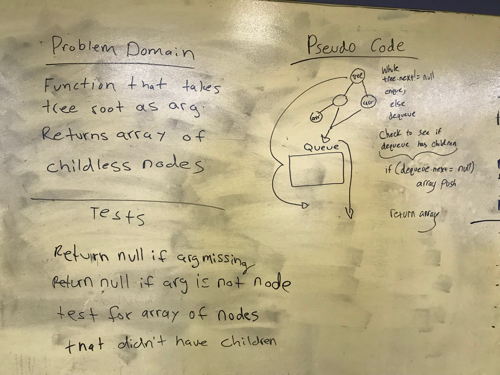 Problem Domain
Function that takes
tree root as arg.
Returns array of
childless nodes
Tests
Return null if arg missing
Return null if arg is not node
test for array of nodes
that didn't have children
Pseudo Code
tree
curr
Queue
While
tree.next != null
enque
else
dequeue
Check to see if
dequeue has children
if (dequeue.next = null)
array push
return array